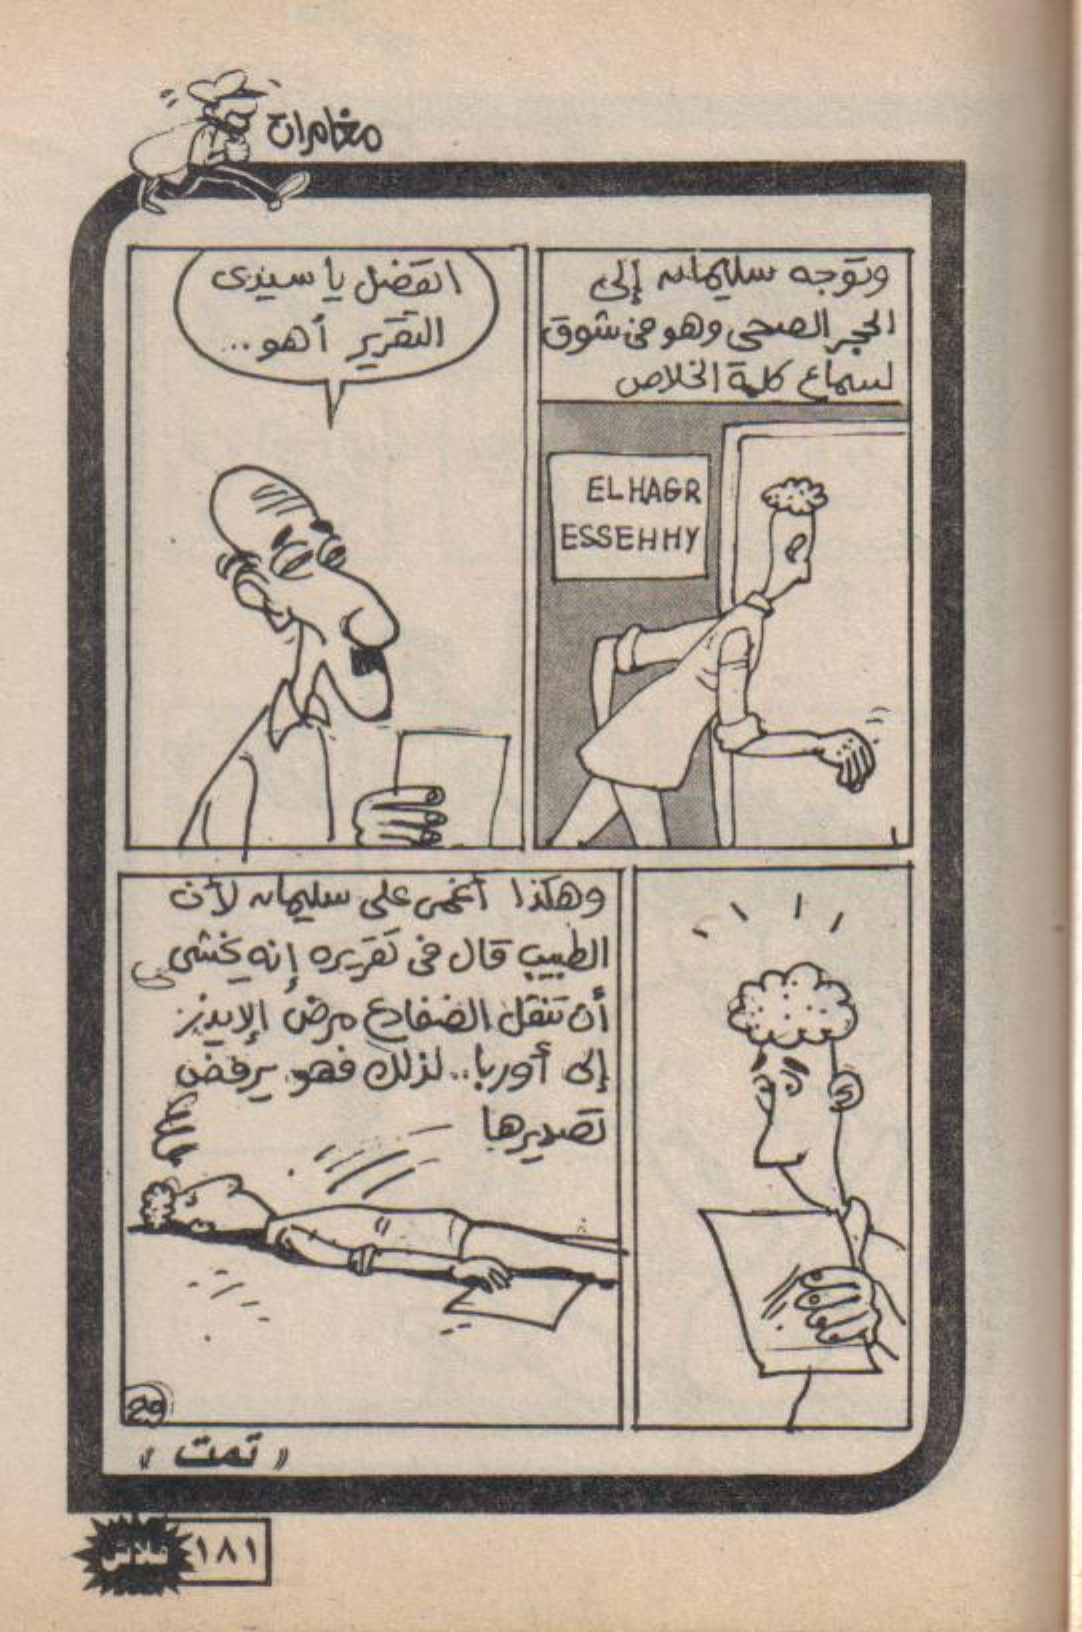 مغامرات
وتوجه سليمان إلى
الحجر الصحى وهو فى شوق
لسماع كلمة الخلاص
EL HAGR
ESSEHHY
اتفضل يا سيدى
التقرير أهو..
وهكذا أغمى على سليمان لأن
الطبيب قال فى تقريره إنه يخشى
أن تنقل الضفادع مرض الإيدز
إلى أوربا.. لذلك فهو يرفض
تصديرها
29
" تمت "
فلاش
١٨١